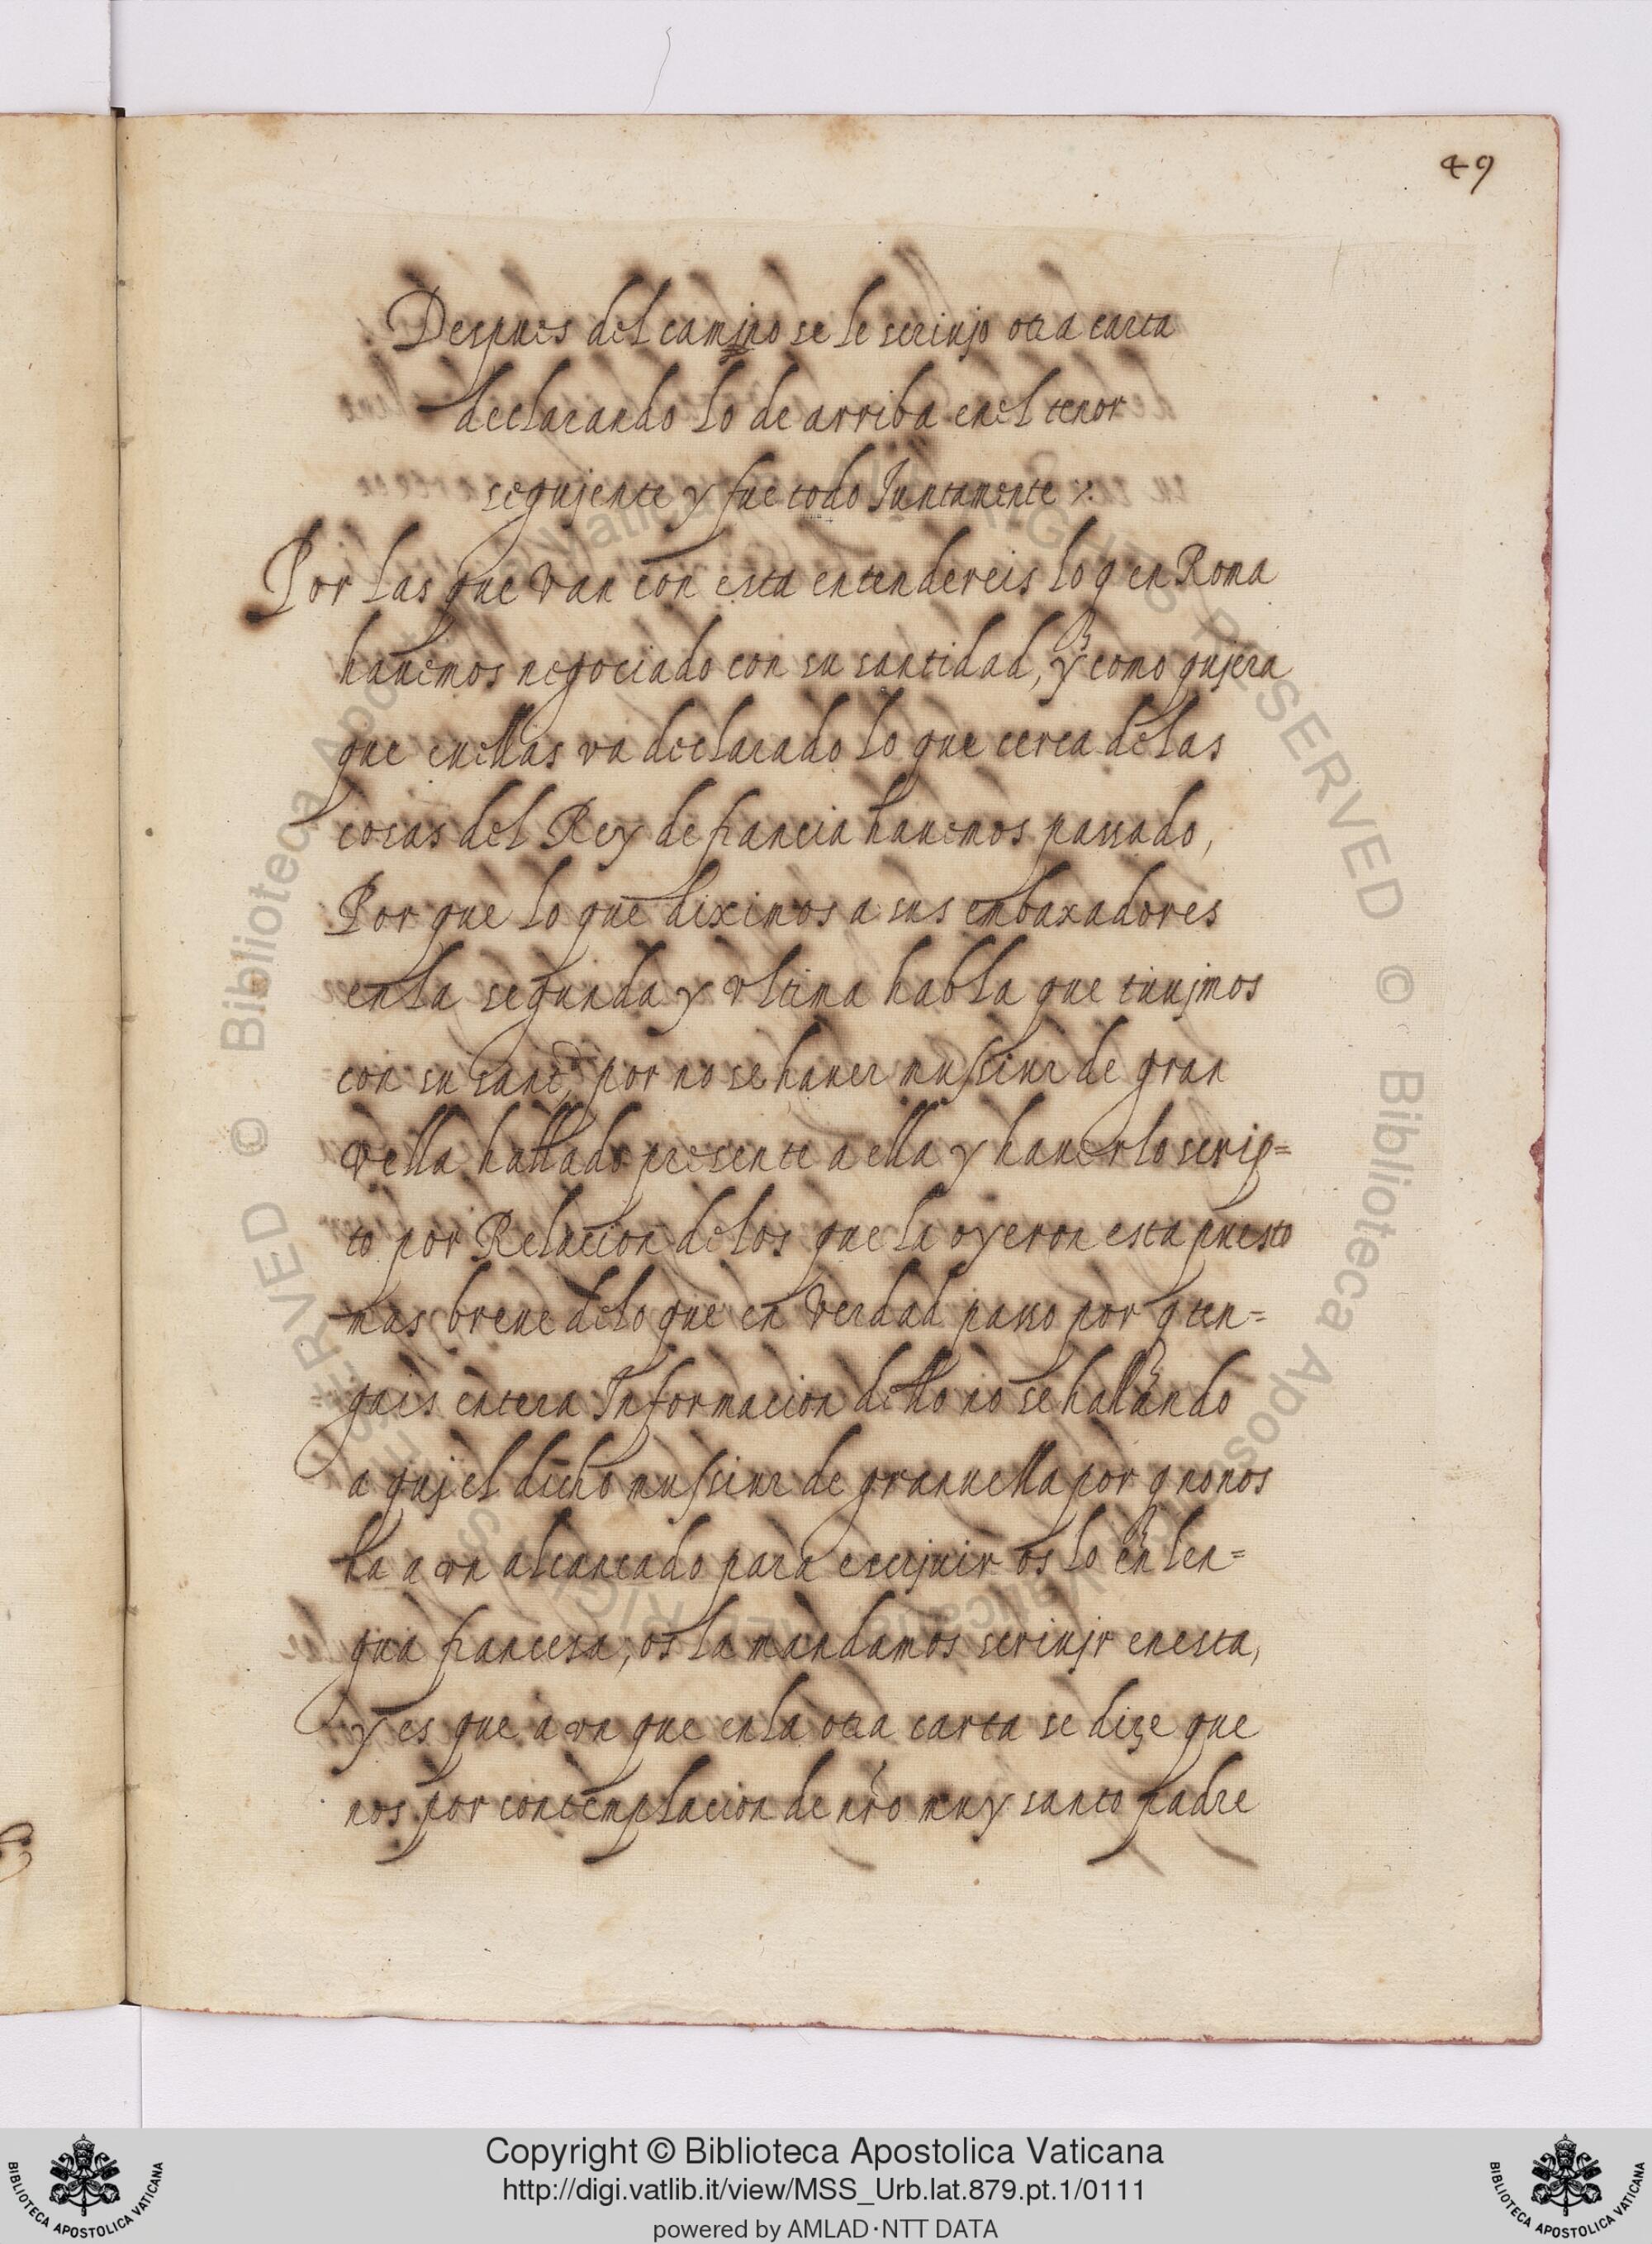 49
Despues del camjno se le scriujo otra carta
declarando lo de arriba enel tenor
segujente y fue todo Juntamente
Por las que van con esta entendereis lo q̃ en Roma
hauemos negociado con su santidad, y como qujera
que enellas va declarado lo que cerca delas
cosas del Rey de francia hauemos passado,
Por que lo que diximos a sus enbaxadores
enla segunda y vltima habla que tuujmos
con su sanc.d por no se hauer musiur de gran
vella hallado presente a ella y hauerlo scrip=
to por Relacion delos que la oyeron esta puesto
mas breue delo que en verdad passo por q̃ ten=
gais entera Informacion dello no se hallando
a quj el dicho musiur de granuella por q̃ no nos
ha a vn alcançado para escriuir os lo en len=
gua francesa, os la mandamos scriujr enesta,
y es que a vn que enla otra carta se dize que
nos por contemplacion de nr̃o muy santo padre
© Biblioteca Apostolica Vaticana ALL RIGHTS RESERVED
© Biblioteca Apostolica Vaticana ALL RIGHTS RESERVED
BIBLIOTECA APOSTOLICA VATICANA
Copyright © Biblioteca Apostolica Vaticana
http://digi.vatlib.it/view/MSS_Urb.lat.879.pt.1/0111
powered by AMLAD·NTT DATA
BIBLIOTECA APOSTOLICA VATICANA